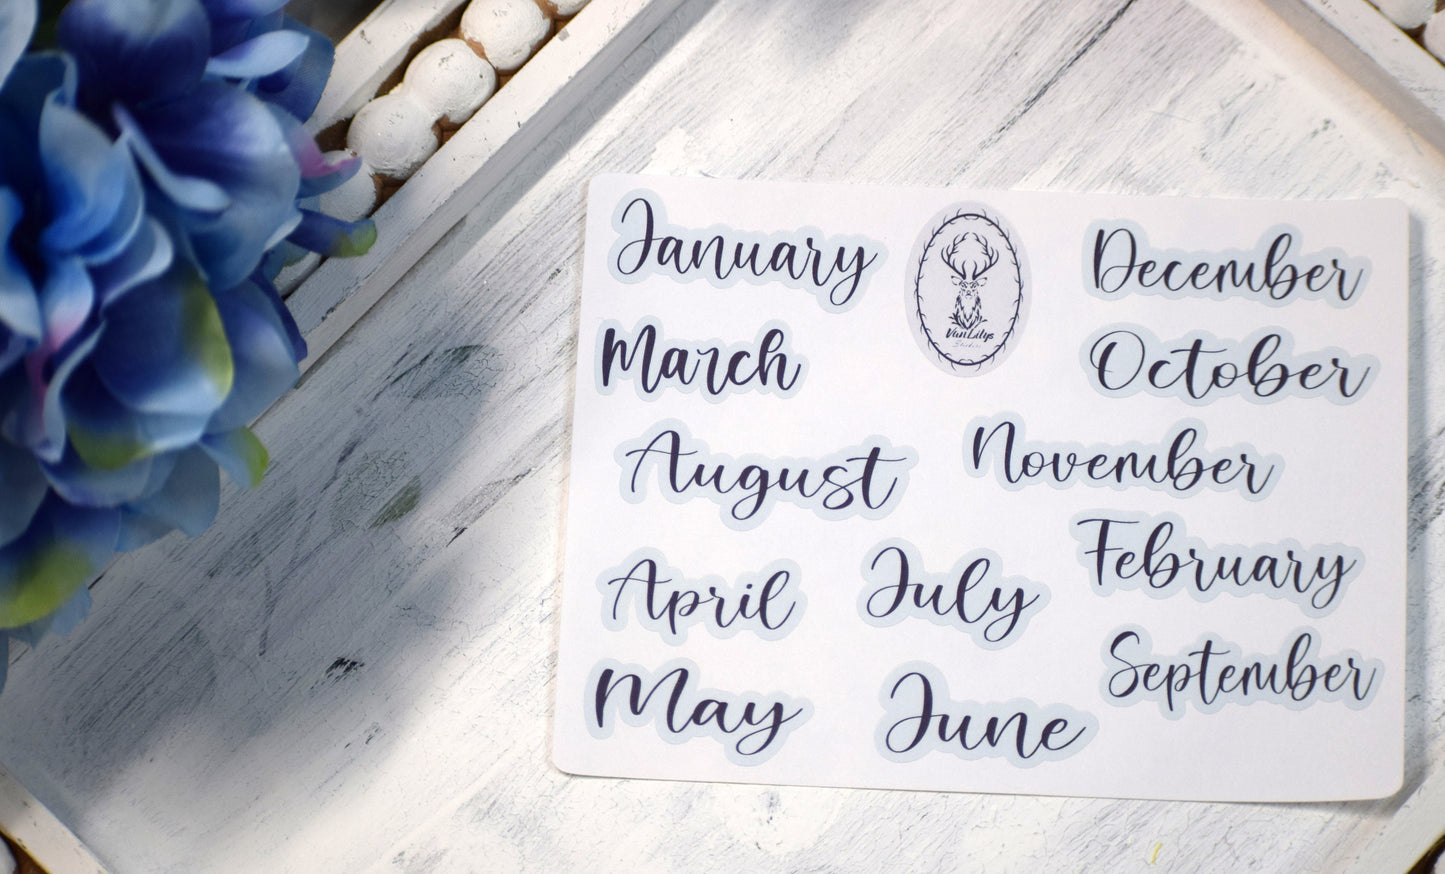 January
VanLilys
Studios
December
March
October
August
November
February
April
July
September
May
June